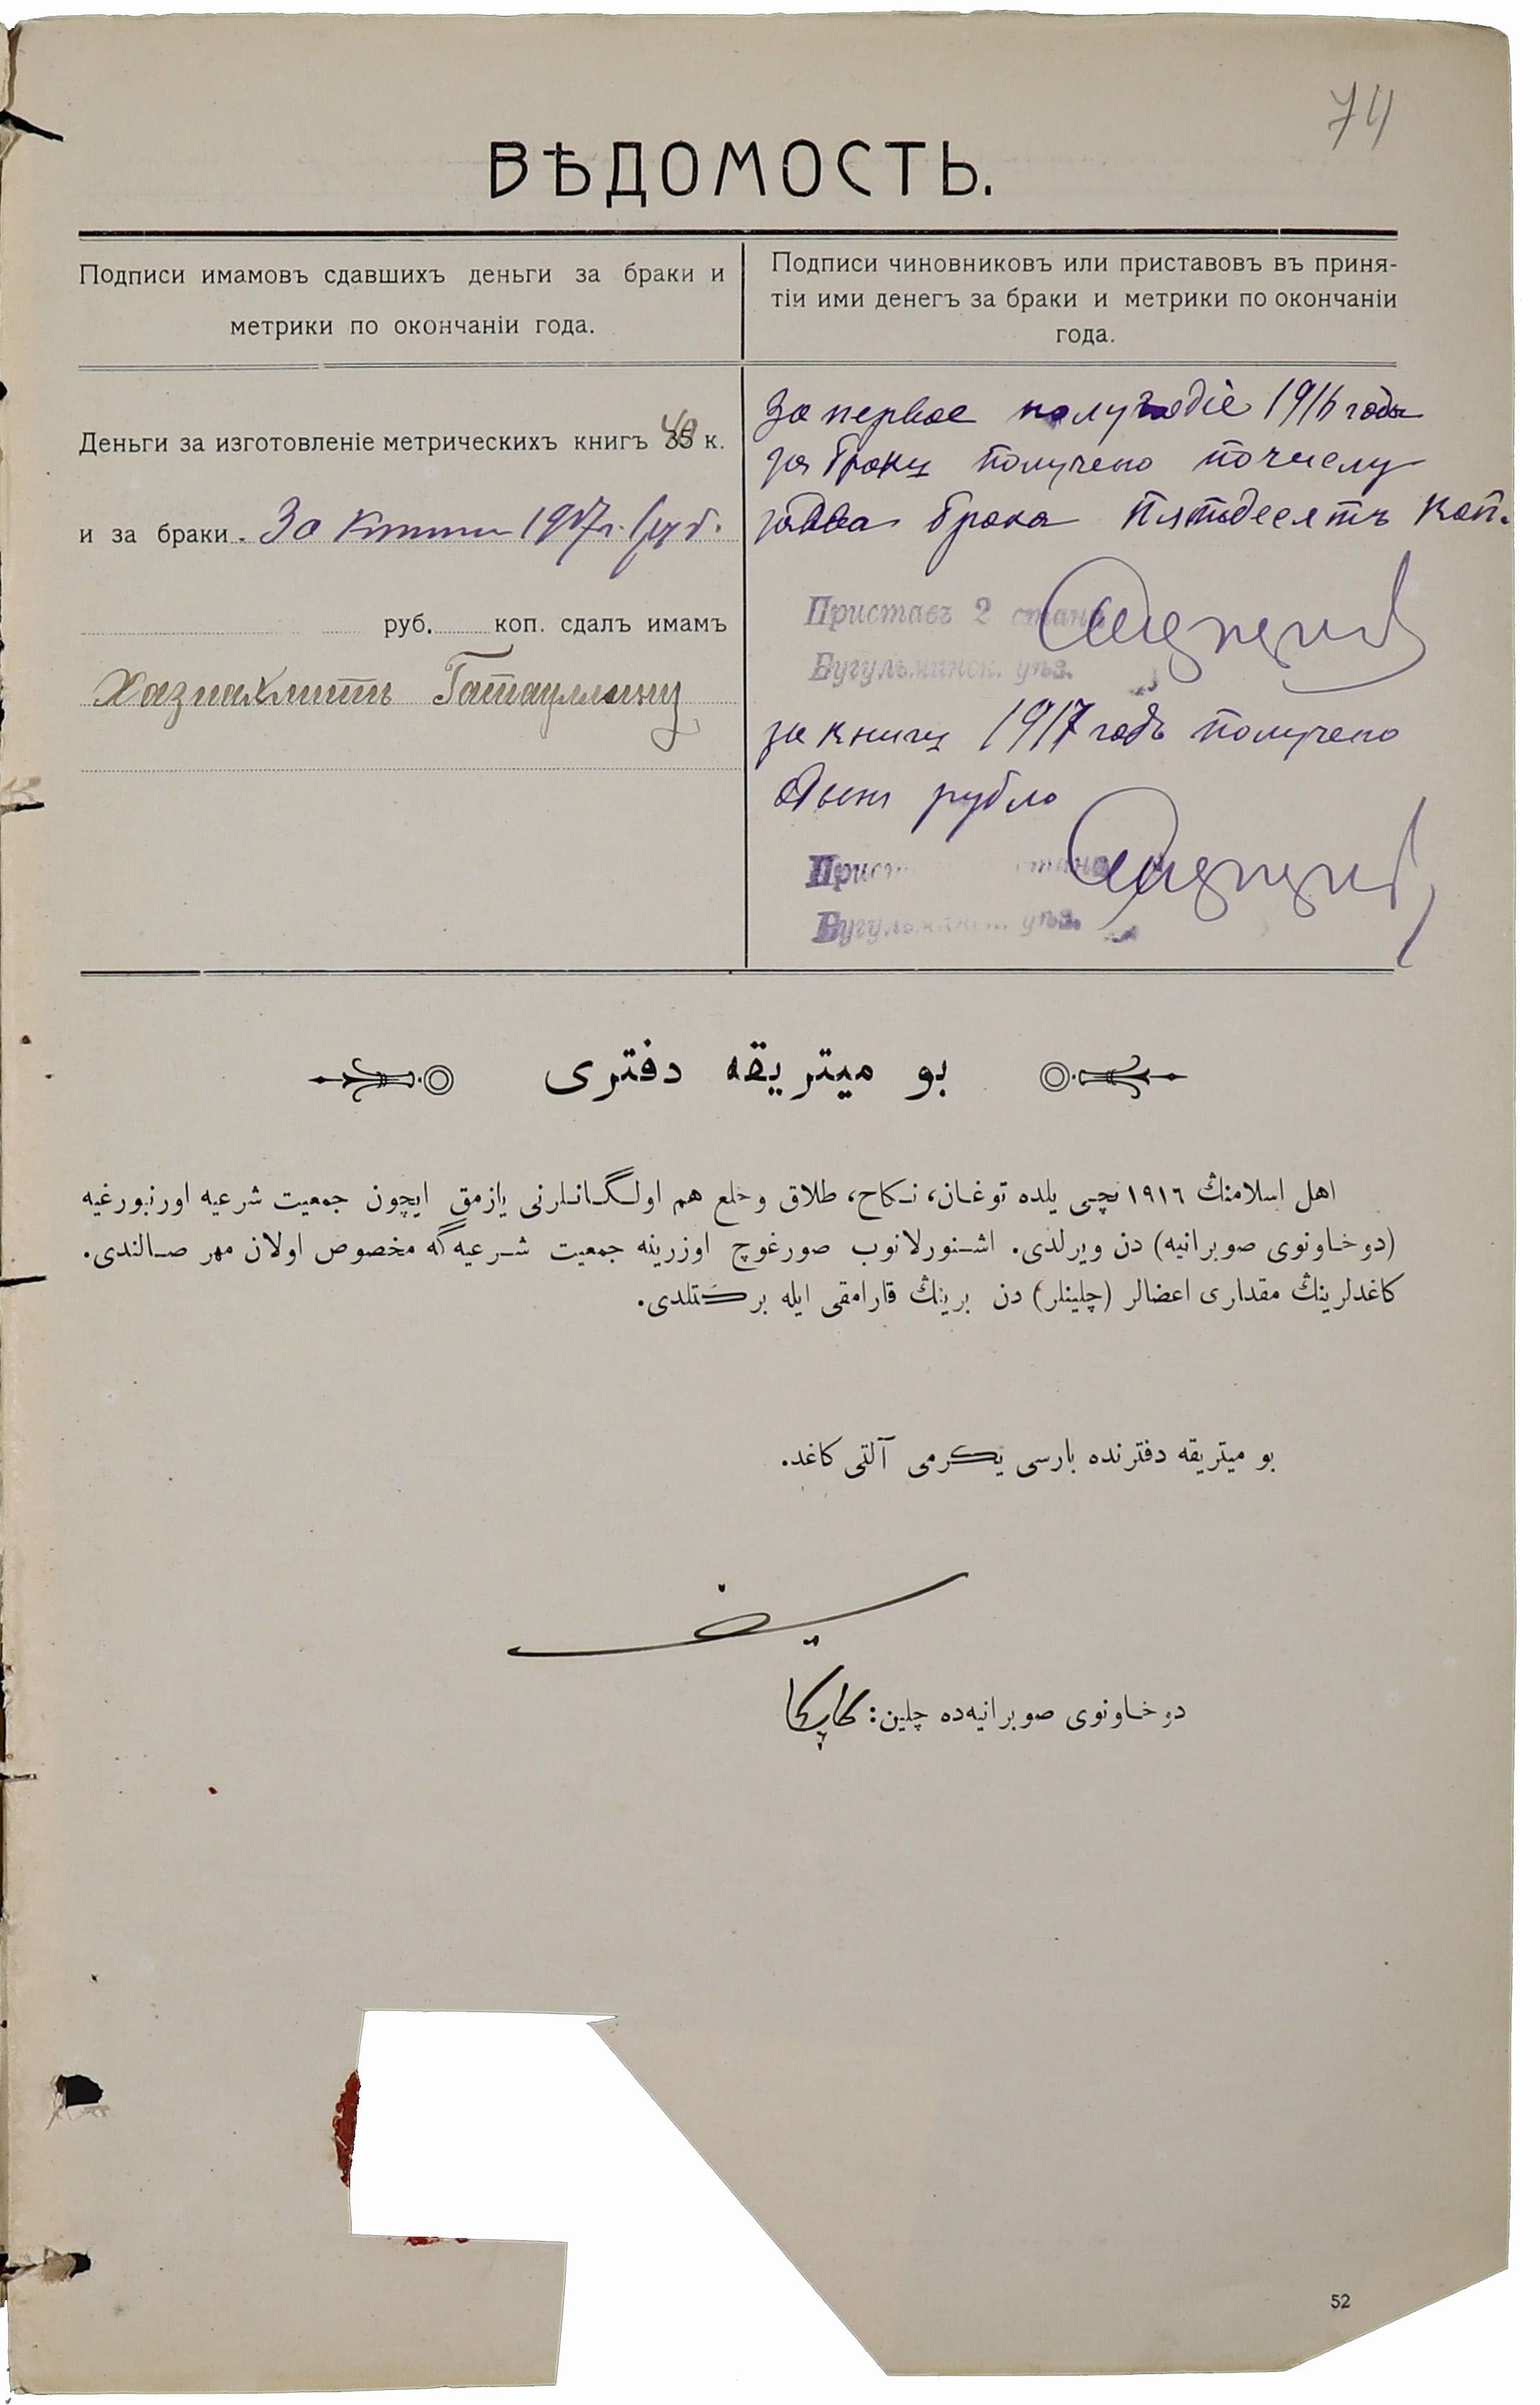 74
ВѢДОМОСТЬ.
Подписи имамовъ сдавшихъ деньги за браки и
метрики по окончаніи года.
Подписи чиновниковъ или приставовъ въ приня-
тіи ими денегъ за браки и метрики по окончаніи
года.
Деньги за изготовленіе метрическихъ книгъ 35 40 к.
и за браки. За 1917 г. 1 руб.
руб. коп. сдалъ имамъ
Хазиахметъ Гатауллинъ
За первое полугодіе 1916 года
за браки получено по числу
за два брака пятьдесятъ коп.
Приставъ 2 стана
Бугульминск. уѣз.
за книги 1917 годъ получено
Одинъ рубль
Приставъ стана
Бугульминск. уѣз.
بو ميتريقه دفترى
اهل اسلامنڭ ١٩١٦ نچى يلده توغان، نكاح، طلاق وخلع هم اولگانلرنى يازمق ايچون جمعيت شرعيه اورنبورغيه
(دوخاونوى صوبرانيه) دن ويرلدى. اشنورلانوب صورغوچ اوزرينه جمعيت شرعيه گه مخصوص اولان مهر صالندى.
كاغدلرينڭ مقدارى اعضالر (چلينلر) دن برينڭ قارامقى ايله بركتلدى.
بو ميتريقه دفترنده بارسى يكرمى آلتى كاغد.
دوخاونوى صوبرانيه‌ده چلين:
52